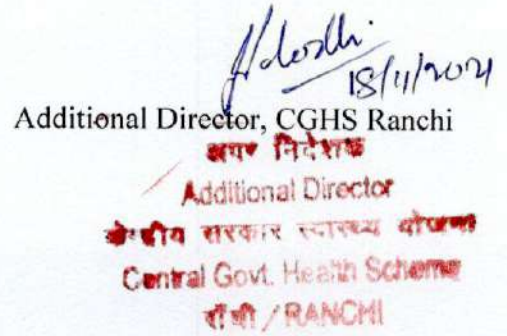 18/11/2021
Additional Director, CGHS Ranchi
अपर निदेशक
Additional Director
केन्द्रीय सरकार स्वास्थ्य योजना
Central Govt. Health Scheme
राँची / RANCHI